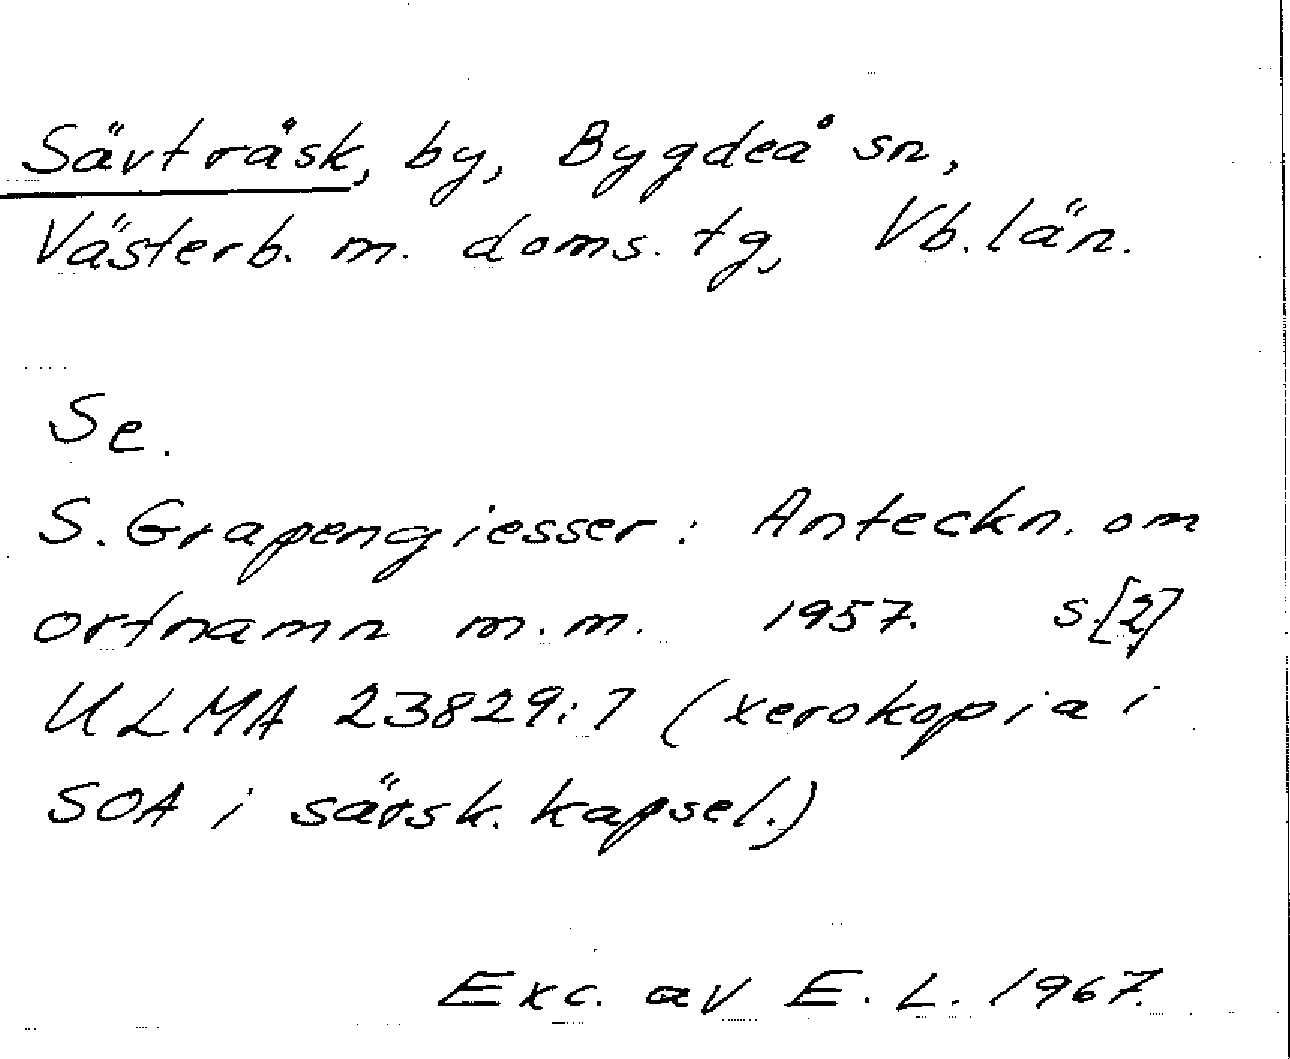 Sävträsk, by, Bygdeå sn,
Västerb. m. doms. tg, Vb. län.
Se.
S. Grapengiesser: Anteckn. om
ortnamn m.m. 1957. s[2]
ULMA 23829:7 (xerokopia i
SOA i särsk. kapsel.)
Exc. av E. L. 1967.